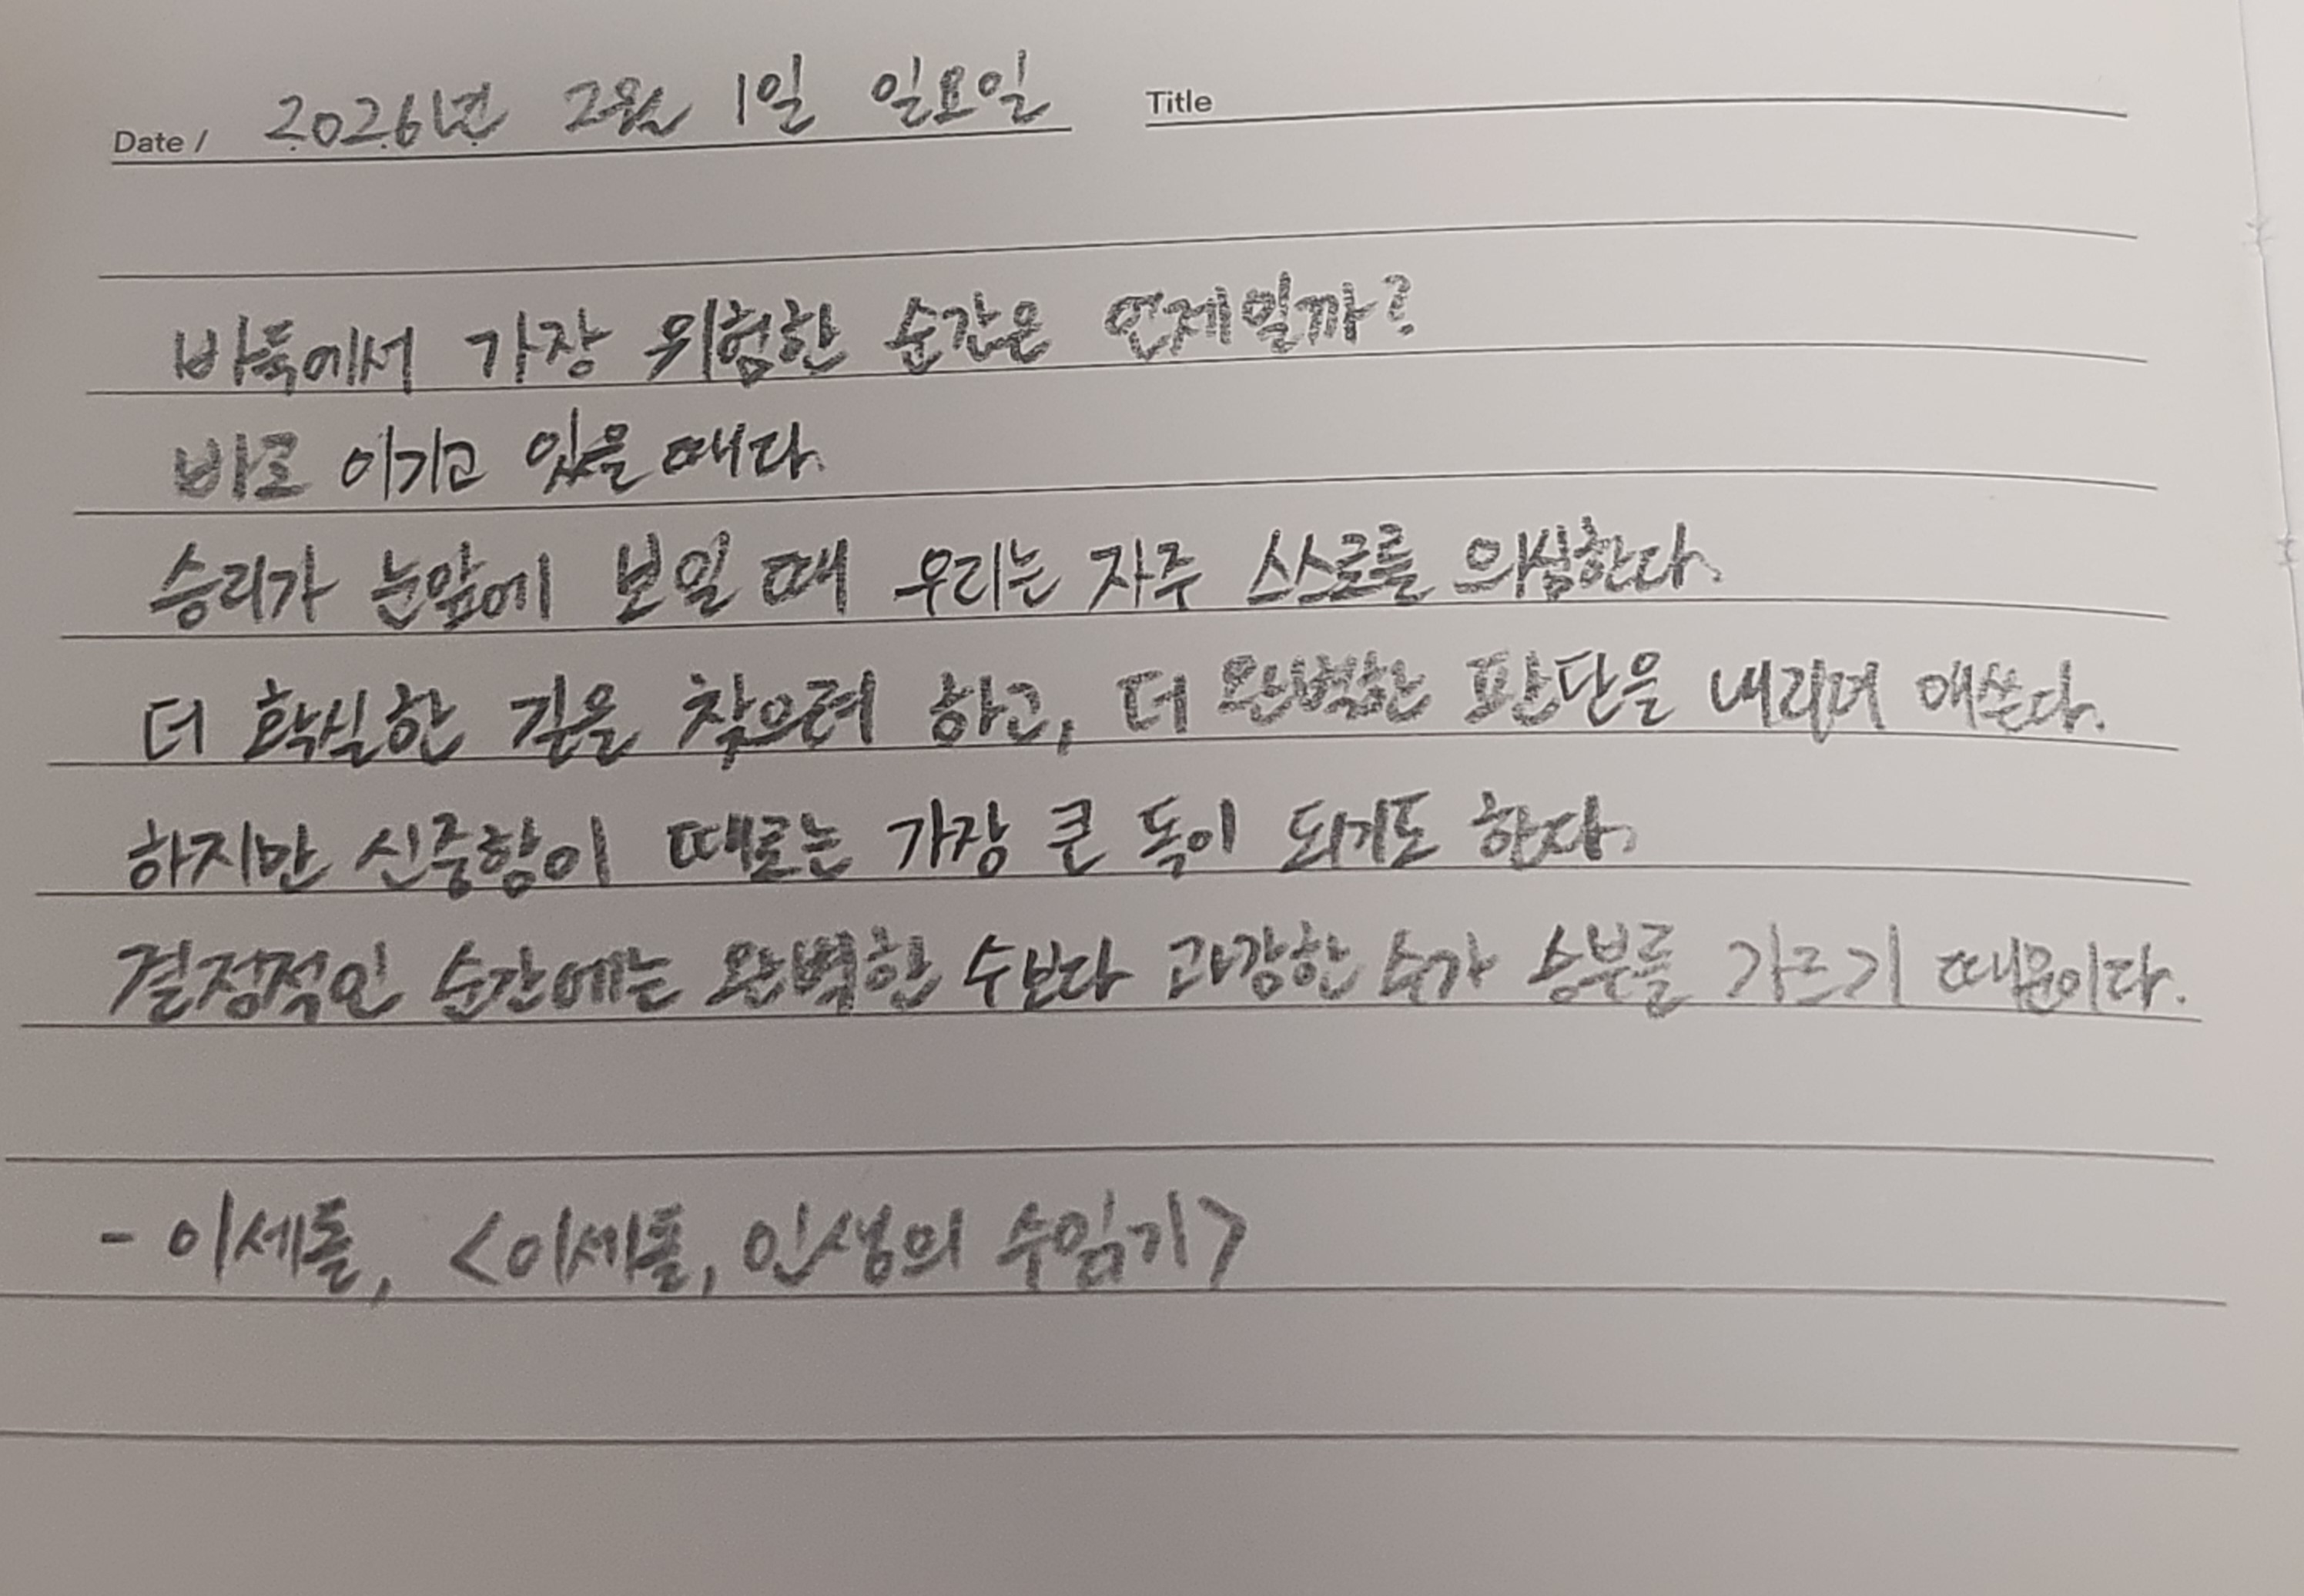 Date / 2026년 2월 1일 일요일 Title
바둑에서 가장 위험한 순간은 언제일까?
바로 이기고 있을 때다.
승리가 눈앞에 보일 때 우리는 자주 스스로를 의심한다.
더 확실한 길을 찾으려 하고, 더 완벽한 판단을 내리려 애쓴다.
하지만 신중함이 때로는 가장 큰 독이 되기도 한다.
결정적인 순간에는 완벽한 수보다 과감한 수가 승부를 가르기 때문이다.
- 이세돌, <이세돌, 인생의 수읽기>